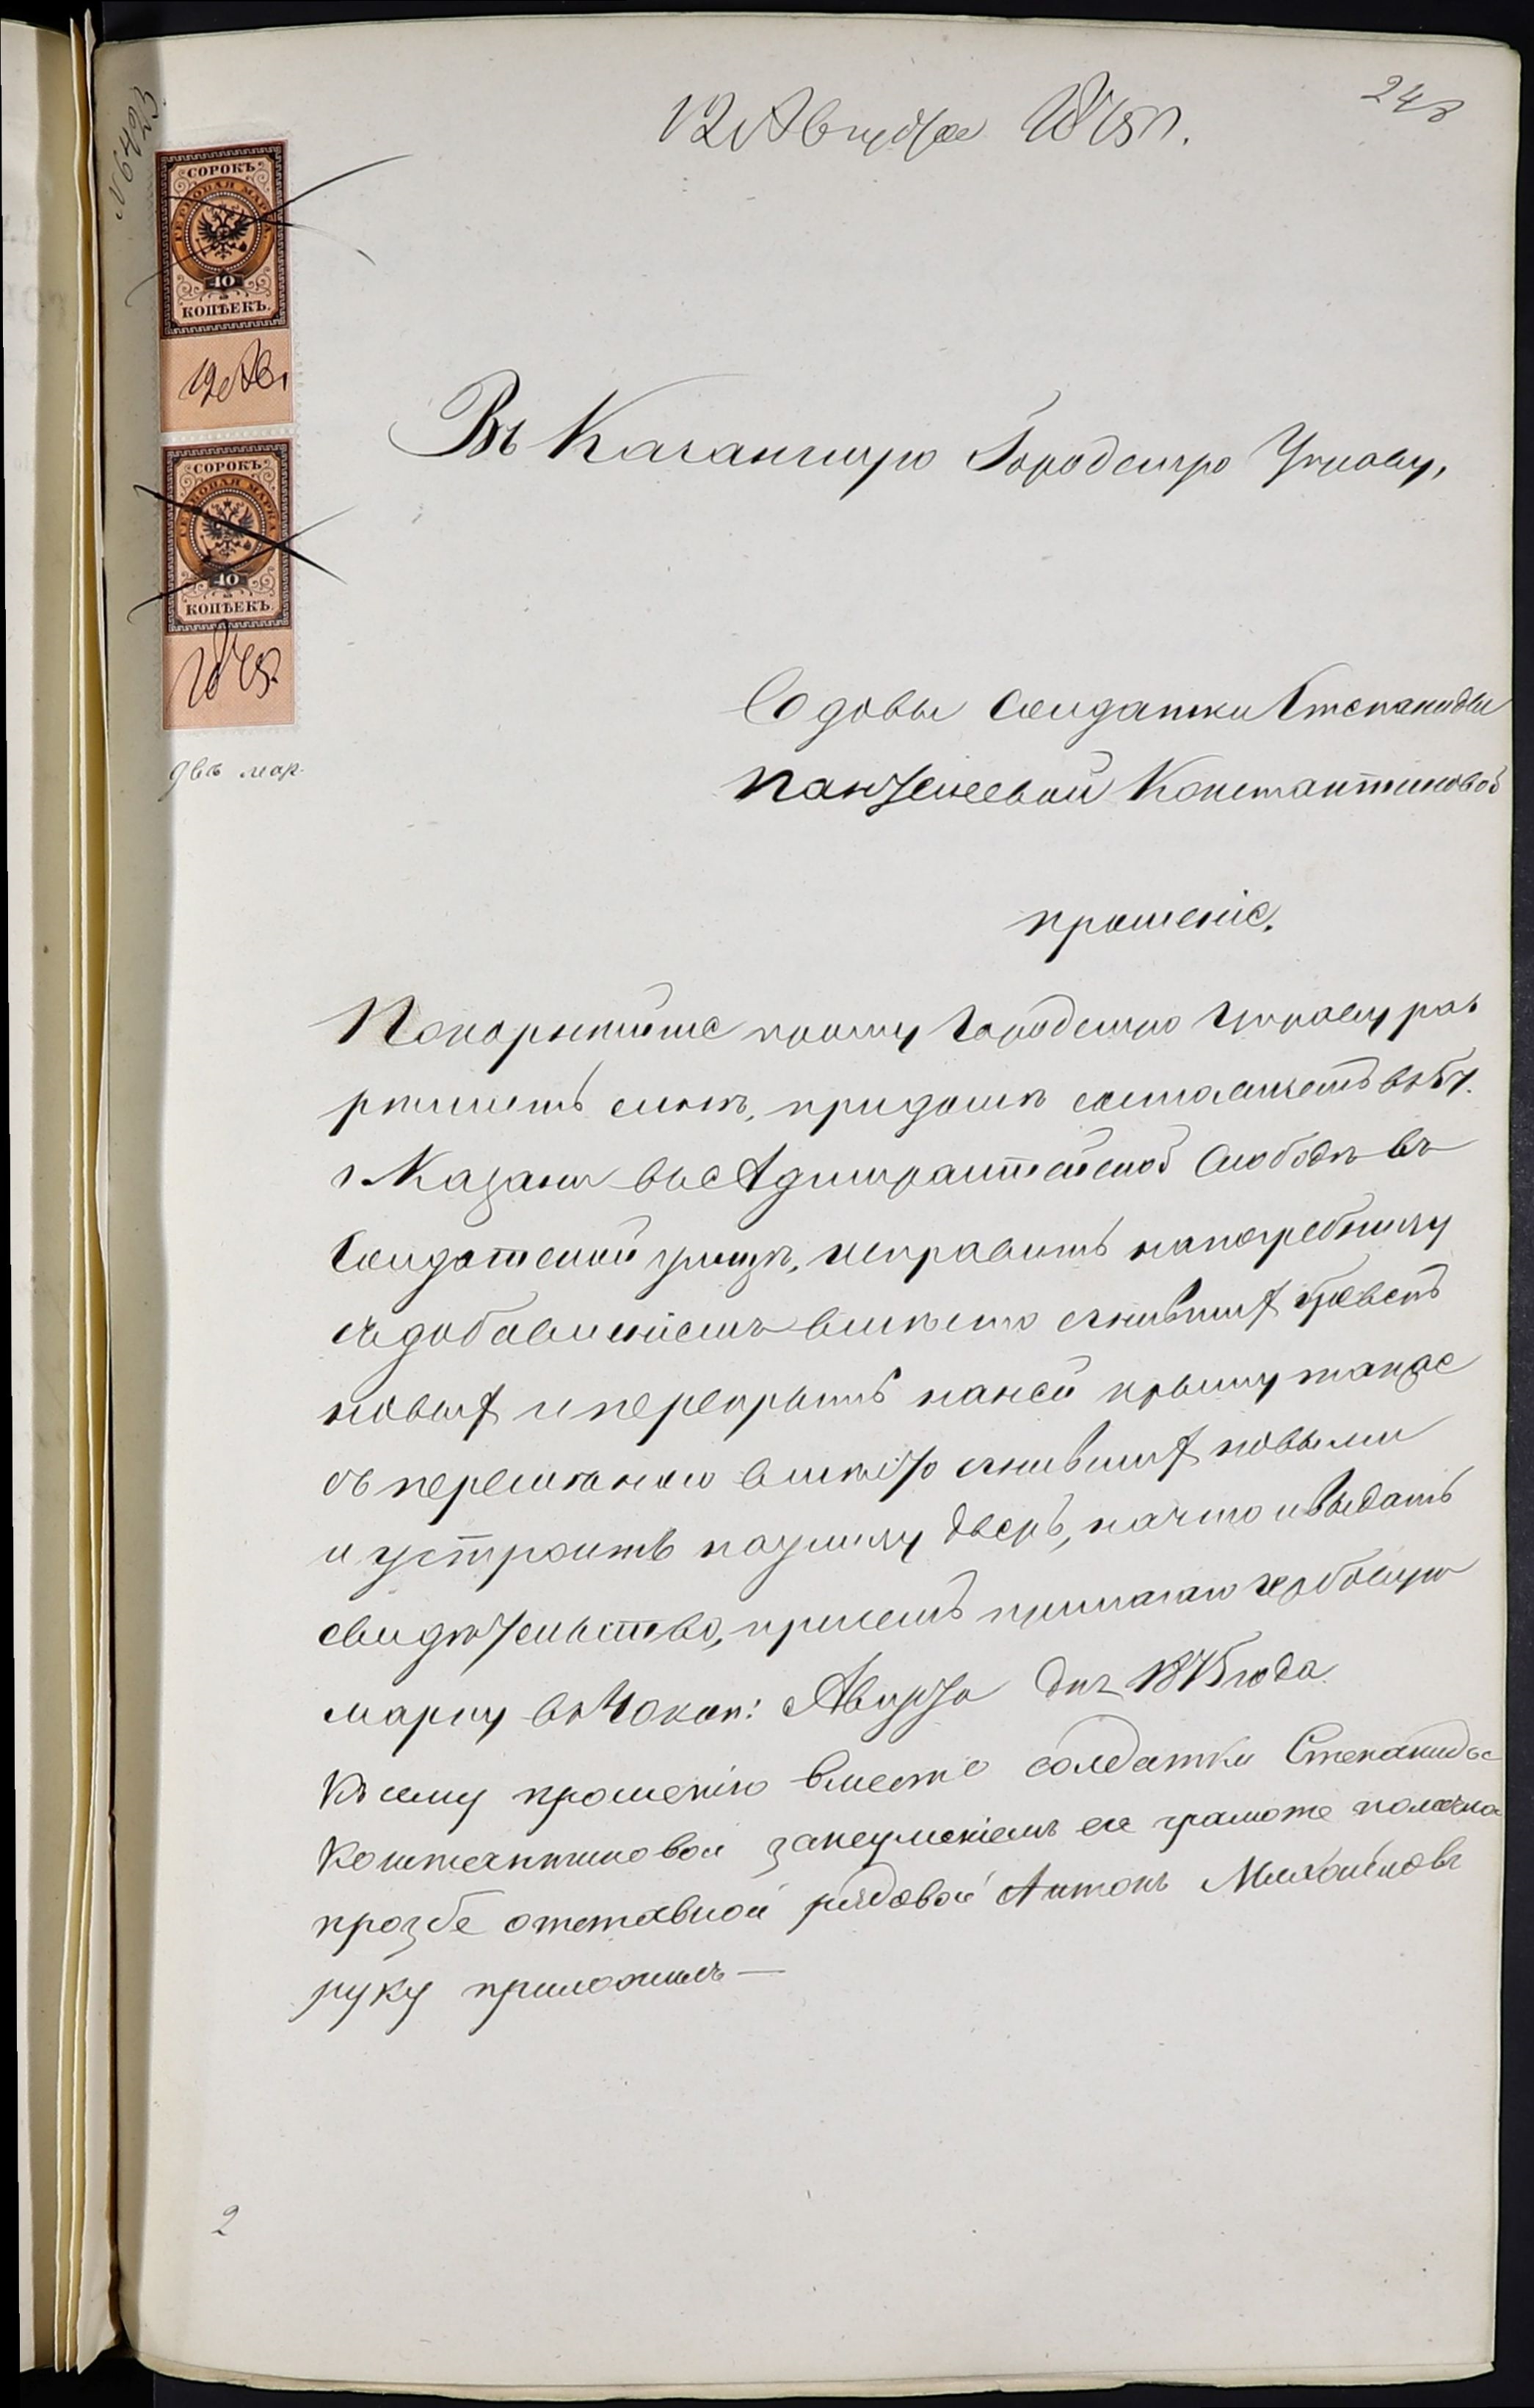 243
12 Августа 1875 г.
N 6423
СОРОКЪ
ГЕРБОВАЯ МАРКА
40
КОПѢЕКЪ.
12 Ав
СОРОКЪ
ГЕРБОВАЯ МАРКА
40
КОПѢЕКЪ.
1875
двѣ мар.
Въ Казанскую Городскую Управу,
Вдовы Солдатки Степаниды
Пантелеевой Константиновой
прошеніе.
Покорнѣйше прошу Городскую Управу раз
рѣшить мнѣ, при домѣ состоящемъ въ 5 ч.
г. Казани въ Адмиралтейской Слободѣ въ
Солдатской улицѣ, исправить напогребницу
съ добавленіемъ вмѣсто сгнившихъ бревенъ
новыхъ и перекрыть на ней крышу также
съ перемѣною вмѣсто сгнившихъ новыми
и устроить на улицу дверь, на что и выдать
свидѣтельство, при семъ прилагаю гербовую
марку въ 40 коп: Августа дня 1875 года
Къ сему прошенію вместо солдатки Степаниды
Константиновой за неумѣніемъ ее грамоте по личной
прозбе отставной рядовой Антонъ Михайловъ
руку приложилъ —
2